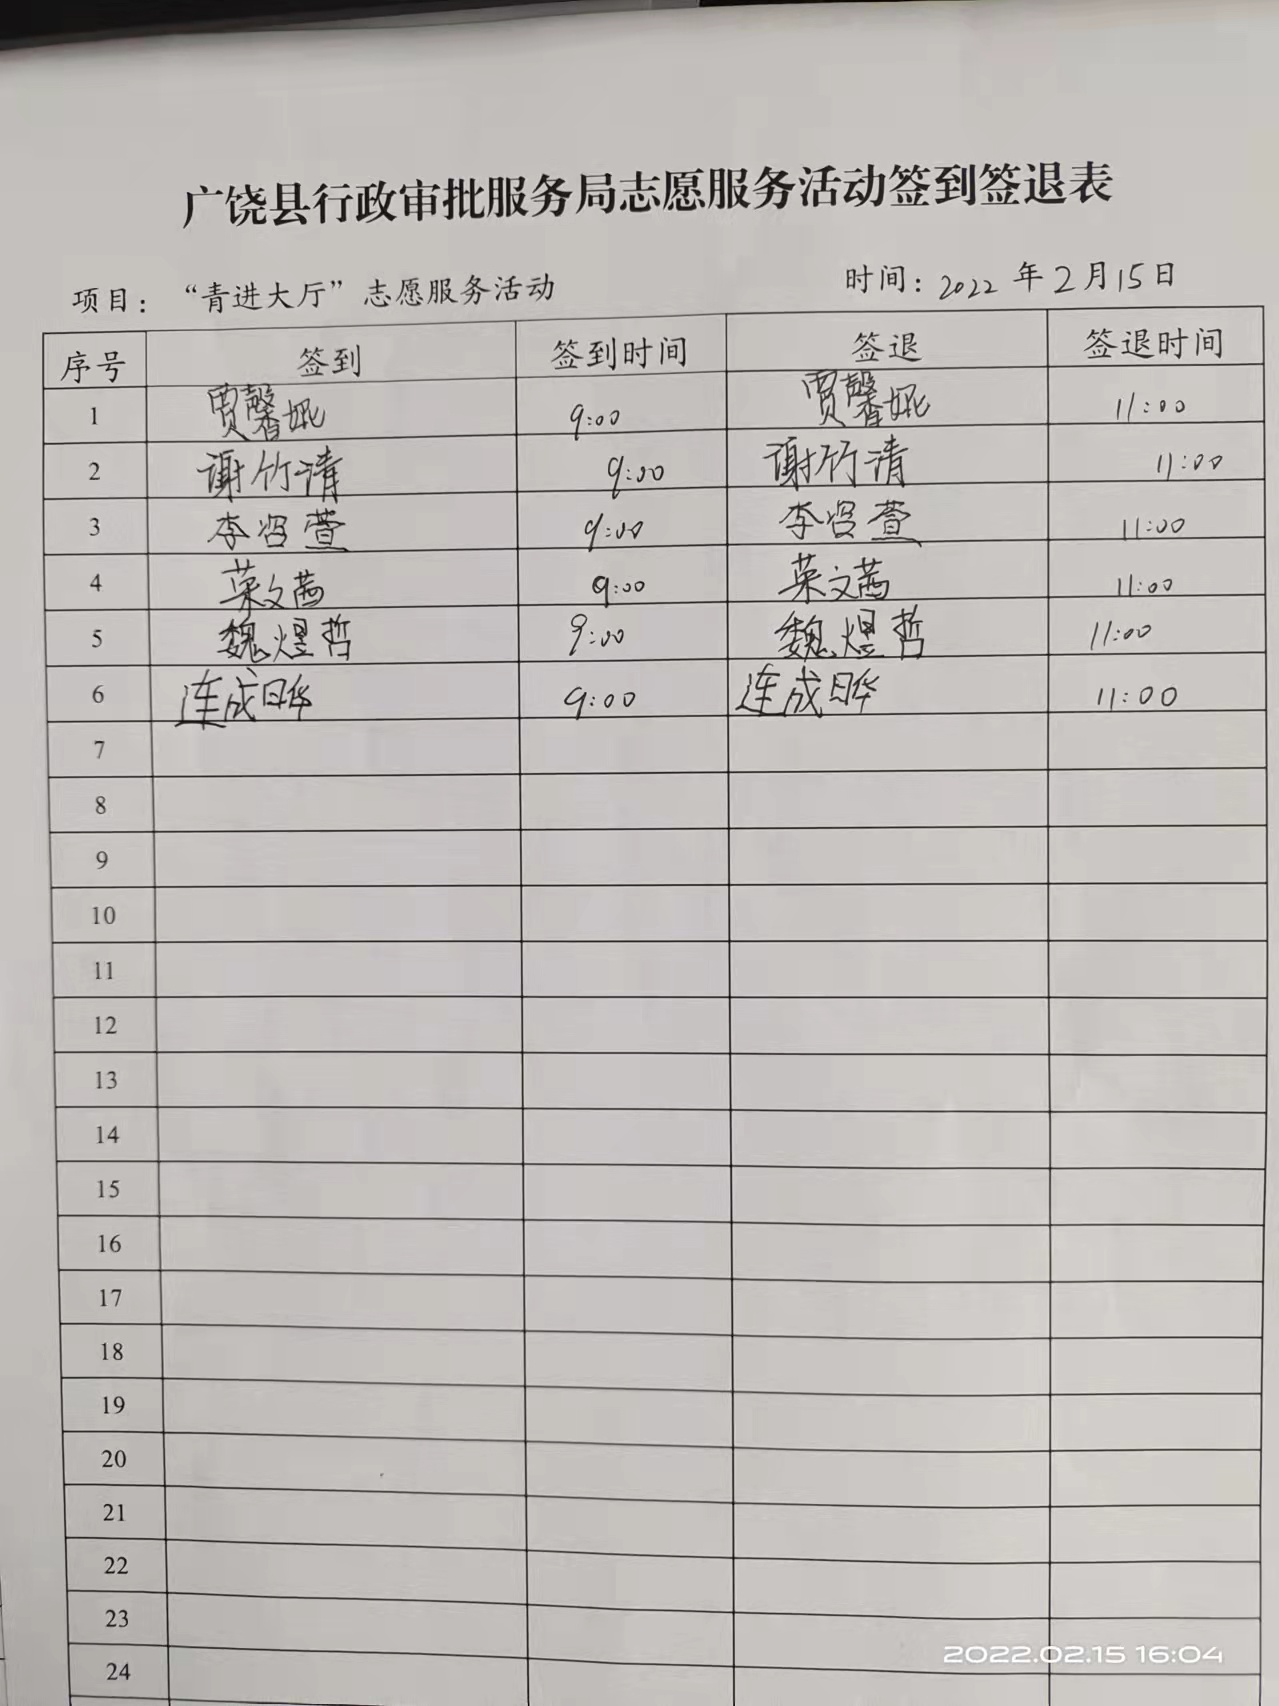 广饶县行政审批服务局志愿服务活动签到签退表
项目：“青进大厅”志愿服务活动 时间：2022年2月15日
序号 签到 签到时间 签退 签退时间
1 贾馨妮 9:00 贾馨妮 11:00
2 谢竹清 9:00 谢竹清 11:00
3 李 萱 9:00 李 萱 11:00
4 荣文茜 9:00 荣文茜 11:00
5 魏煜哲 9:00 魏煜哲 11:00
6 连成晔 9:00 连成晔 11:00
7
8
9
10
11
12
13
14
15
16
17
18
19
20
21
22
23
24
2022.02.15 16:04